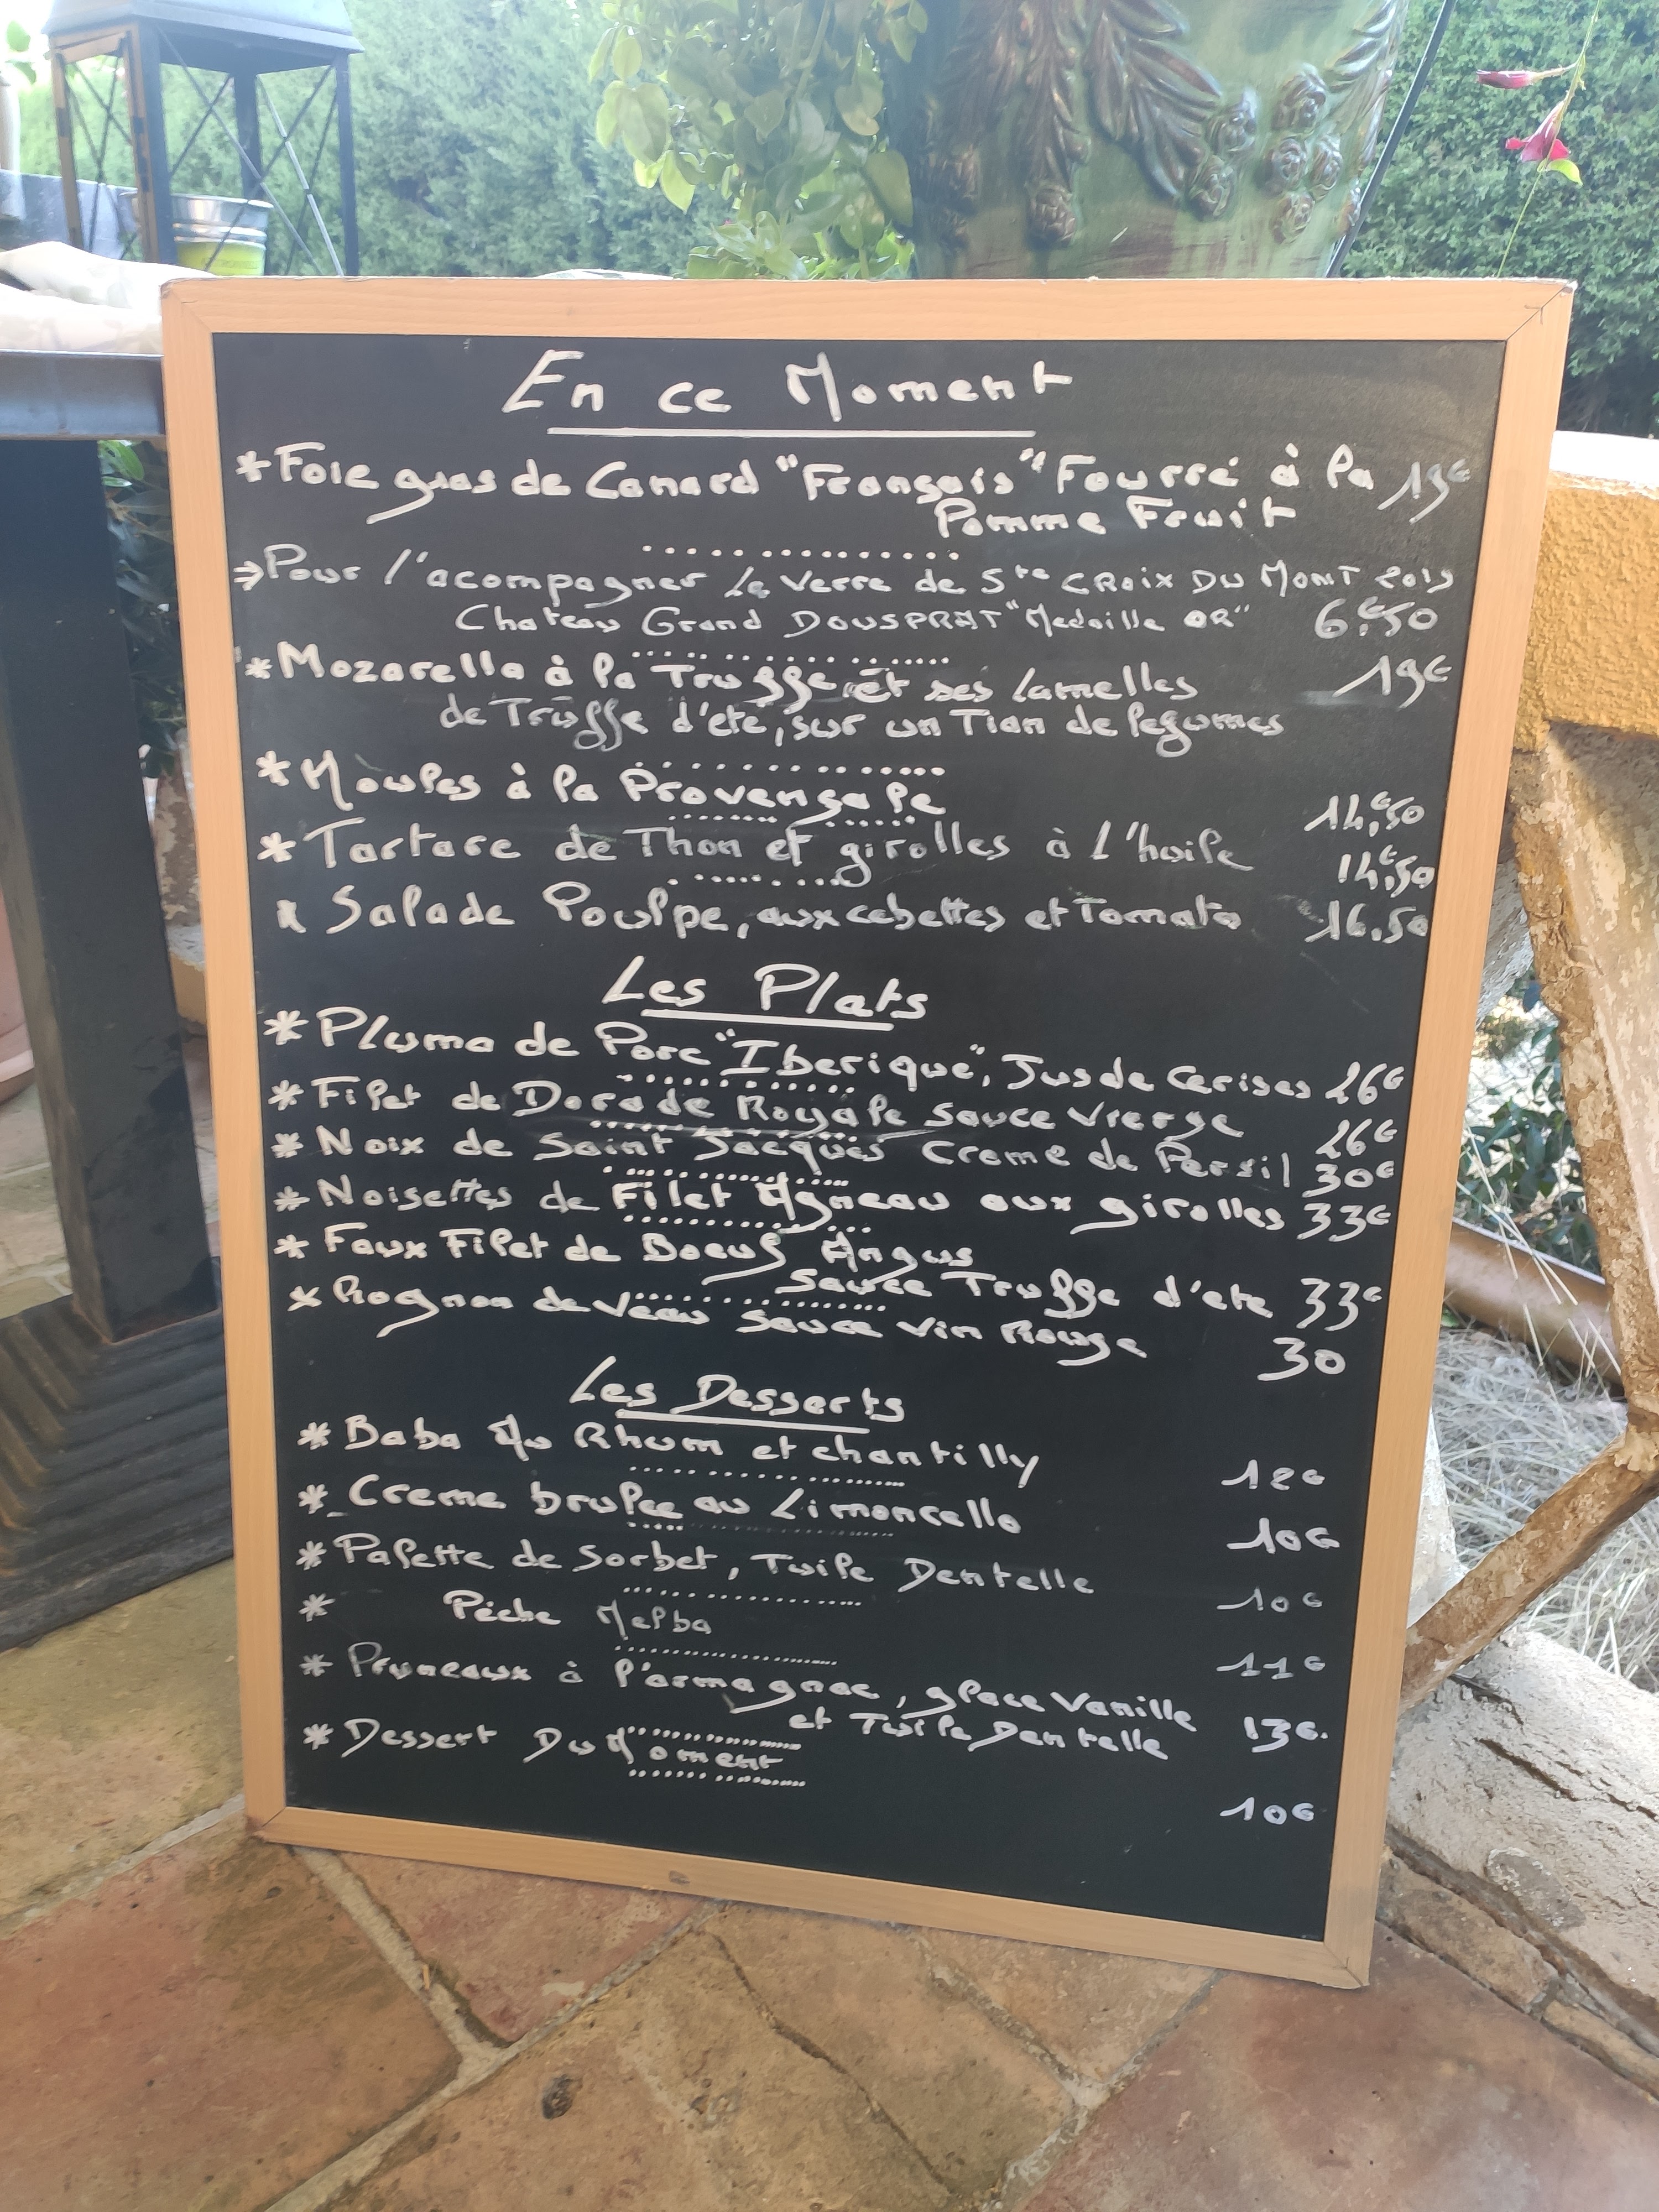 En ce Moment
*Foie gras de Canard "Français" Fourré à la 19€
Pomme Fruit
⇒Pour l'acompagner Le Verre de Ste CROIX DU MONT 2019
Chateau Grand DOUSPRAT "Medaille OR" 6€50
*Mozarella à la Truffe et ses lamelles 19€
de Truffe d'eté, sur un Tian de legumes
*Moules à la Provençale 14€50
*Tartare de Thon et girolles à l'huile 14€50
* Salade Poulpe, aux cebettes et Tomate 16.50
Les Plats
*Pluma de Porc "Iberique", Jus de Cerises 26€
*Filet de Dorade Royale Sauce Vierge 26€
*Noix de Saint Jacques Creme de Persil 30€
*Noisettes de Filet Agneau aux girolles 33€
*Faux Filet de Boeuf Angus
Sauce Truffe d'ete 33€
*Rognon de Veau Sauce Vin Rouge 30
Les Desserts
*Baba Au Rhum et chantilly 12€
*Creme brulee au Limoncello 10€
*Palette de Sorbet, Tuile Dentelle 10€
* Pêche Melba 11€
*Pruneaux à l'armagnac, glace Vanille
et Tuile Dentelle 13€.
*Dessert Du Moment
10€